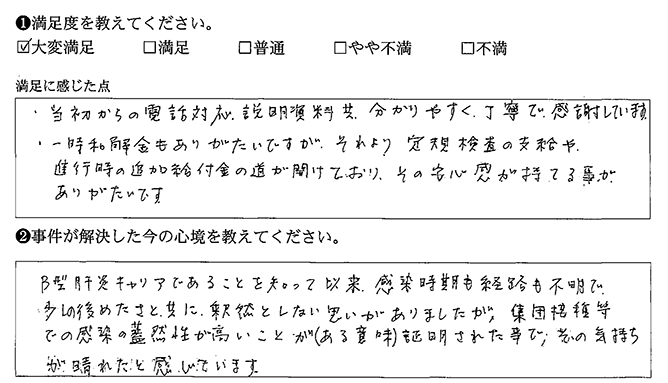 ❶満足度を教えてください。
☑大変満足 □満足 □普通 □やや不満 □不満
満足に感じた点
・当初からの電話対応、説明資料共、分かりやすく、丁寧で感謝しています
・一時和解金もありがたいですが、それより定期検査の支給や、
進行時の追加給付金の道が開けており、その安心感が持てる事が
ありがたいです
❷事件が解決した今の心境を教えてください。
B型肝炎キャリアであることを知って以来、感染時期も経路も不明で、
多少の後めたさと共に、釈然としない思いがありましたが、集団接種等
での感染の蓋然性が高いことが(ある意味)証明された事で、その気持ち
が晴れたと感じています